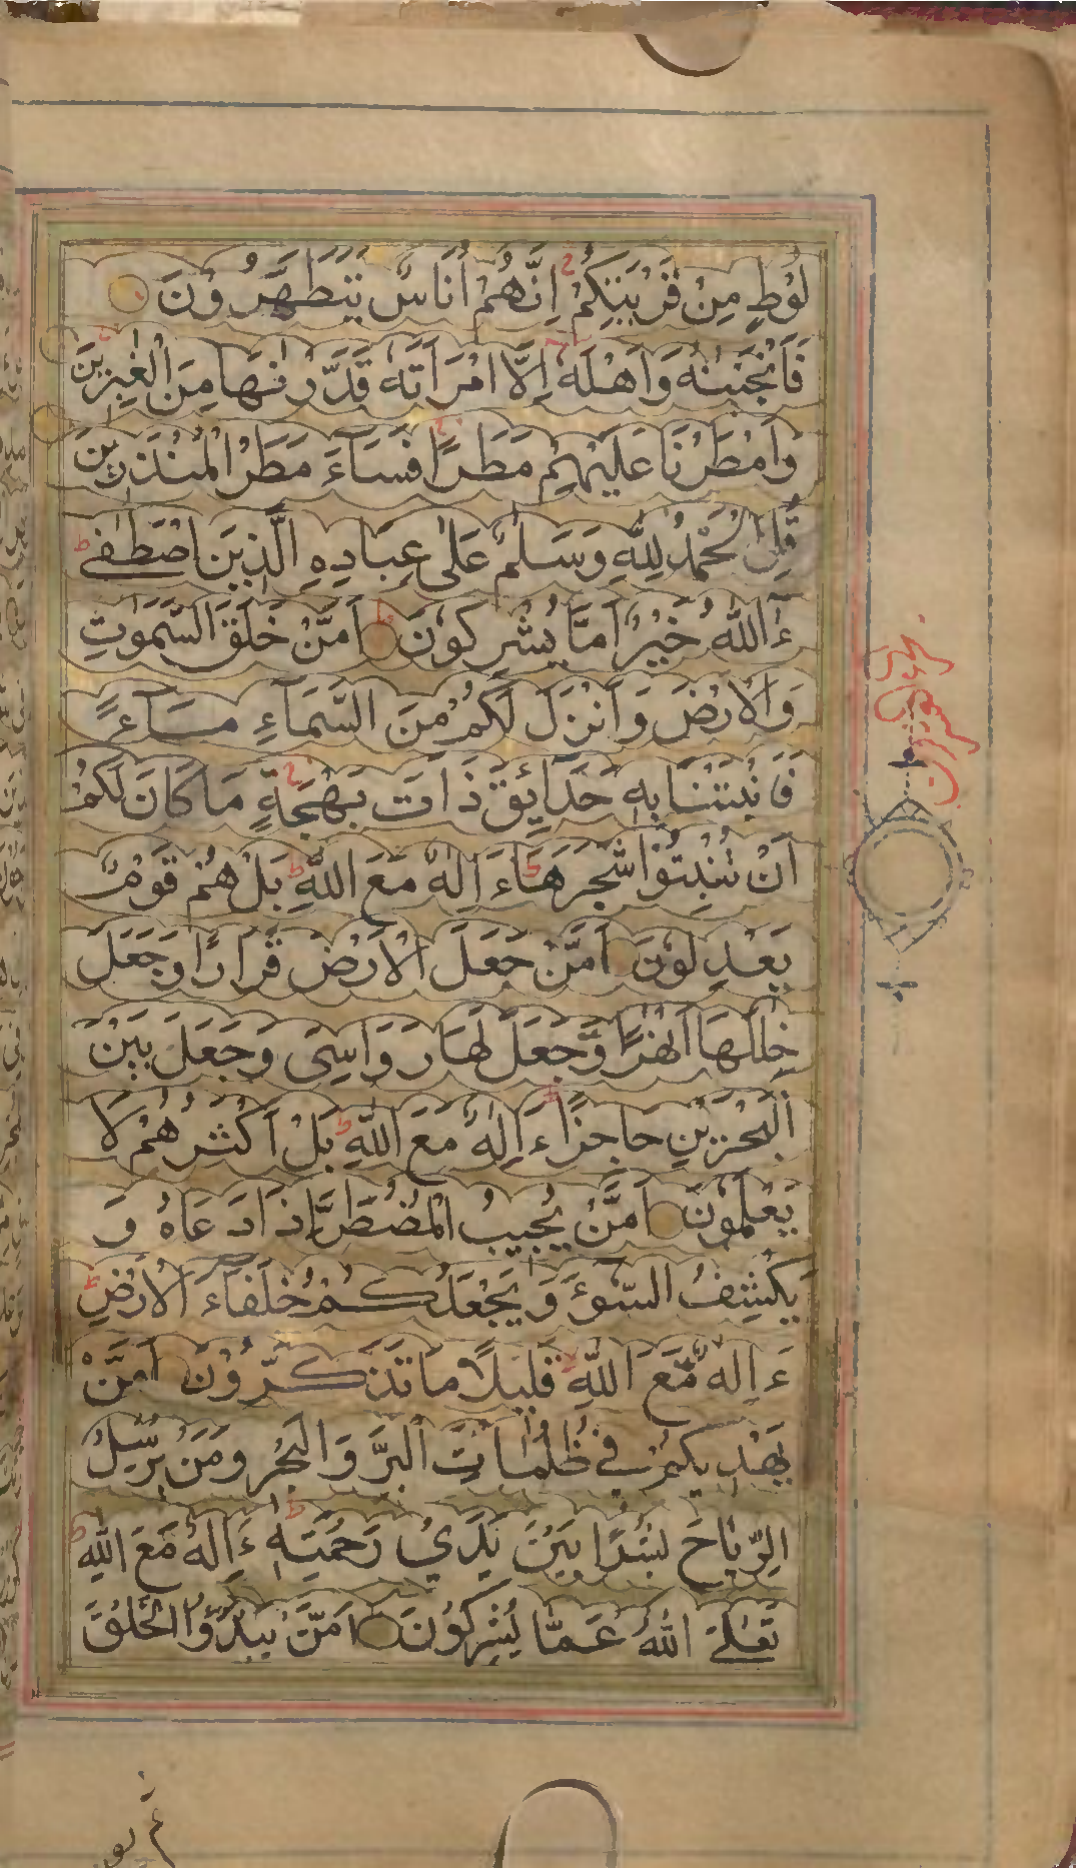 لُوْطٍ مِنْ قَرْيَتِكُمْ اِنَّهُمْ اُنَاسٌ يَتَطَهَّرُوْنَ
فَاَنْجَيْنٰهُ وَاَهْلَهٗ اِلَّا امْرَاَتَهٗ قَدَّرْنٰهَا مِنَ الْغٰبِرِيْنَ
وَاَمْطَرْنَا عَلَيْهِمْ مَطَرًا فَسَآءَ مَطَرُ الْمُنْذَرِيْنَ
قُلِ الْحَمْدُ لِلّٰهِ وَسَلٰمٌ عَلٰى عِبَادِهِ الَّذِيْنَ اصْطَفٰى ط
ءٰاللّٰهُ خَيْرٌ اَمَّا يُشْرِكُوْنَ اَمَّنْ خَلَقَ السَّمٰوٰتِ
وَالْاَرْضَ وَاَنْزَلَ لَكُمْ مِنَ السَّمَآءِ مَآءً
فَاَنْبَتْنَا بِهٖ حَدَآئِقَ ذَاتَ بَهْجَةٍ مَا كَانَ لَكُمْ
اَنْ تُنْبِتُوْا شَجَرَهَا ط ءَاِلٰهٌ مَعَ اللّٰهِ ط بَلْ هُمْ قَوْمٌ
يَعْدِلُوْنَ اَمَّنْ جَعَلَ الْاَرْضَ قَرَارًا وَجَعَلَ
خِلٰلَهَا اَنْهٰرًا وَّجَعَلَ لَهَا رَوَاسِىَ وَجَعَلَ بَيْنَ
الْبَحْرَيْنِ حَاجِزًا ط ءَاِلٰهٌ مَعَ اللّٰهِ ط بَلْ اَكْثَرُهُمْ لَا
يَعْلَمُوْنَ اَمَّنْ يُجِيْبُ الْمُضْطَرَّ اِذَا دَعَاهُ وَ
يَكْشِفُ السُّوْٓءَ وَيَجْعَلُكُمْ خُلَفَآءَ الْاَرْضِ ط
ءَاِلٰهٌ مَّعَ اللّٰهِ ط قَلِيْلًا مَا تَذَكَّرُوْنَ اَمَّنْ
يَهْدِيْكُمْ فِيْ ظُلُمَاتِ الْبَرِّ وَالْبَحْرِ وَمَنْ يُرْسِلُ
الرِّيَاحَ بُشْرًا بَيْنَ يَدَيْ رَحْمَتِهٖ ط ءَاِلٰهٌ مَعَ اللّٰهِ ط
تَعٰلَى اللّٰهُ عَمَّا يُشْرِكُوْنَ اَمَّنْ يَبْدَؤُا الْخَلْقَ